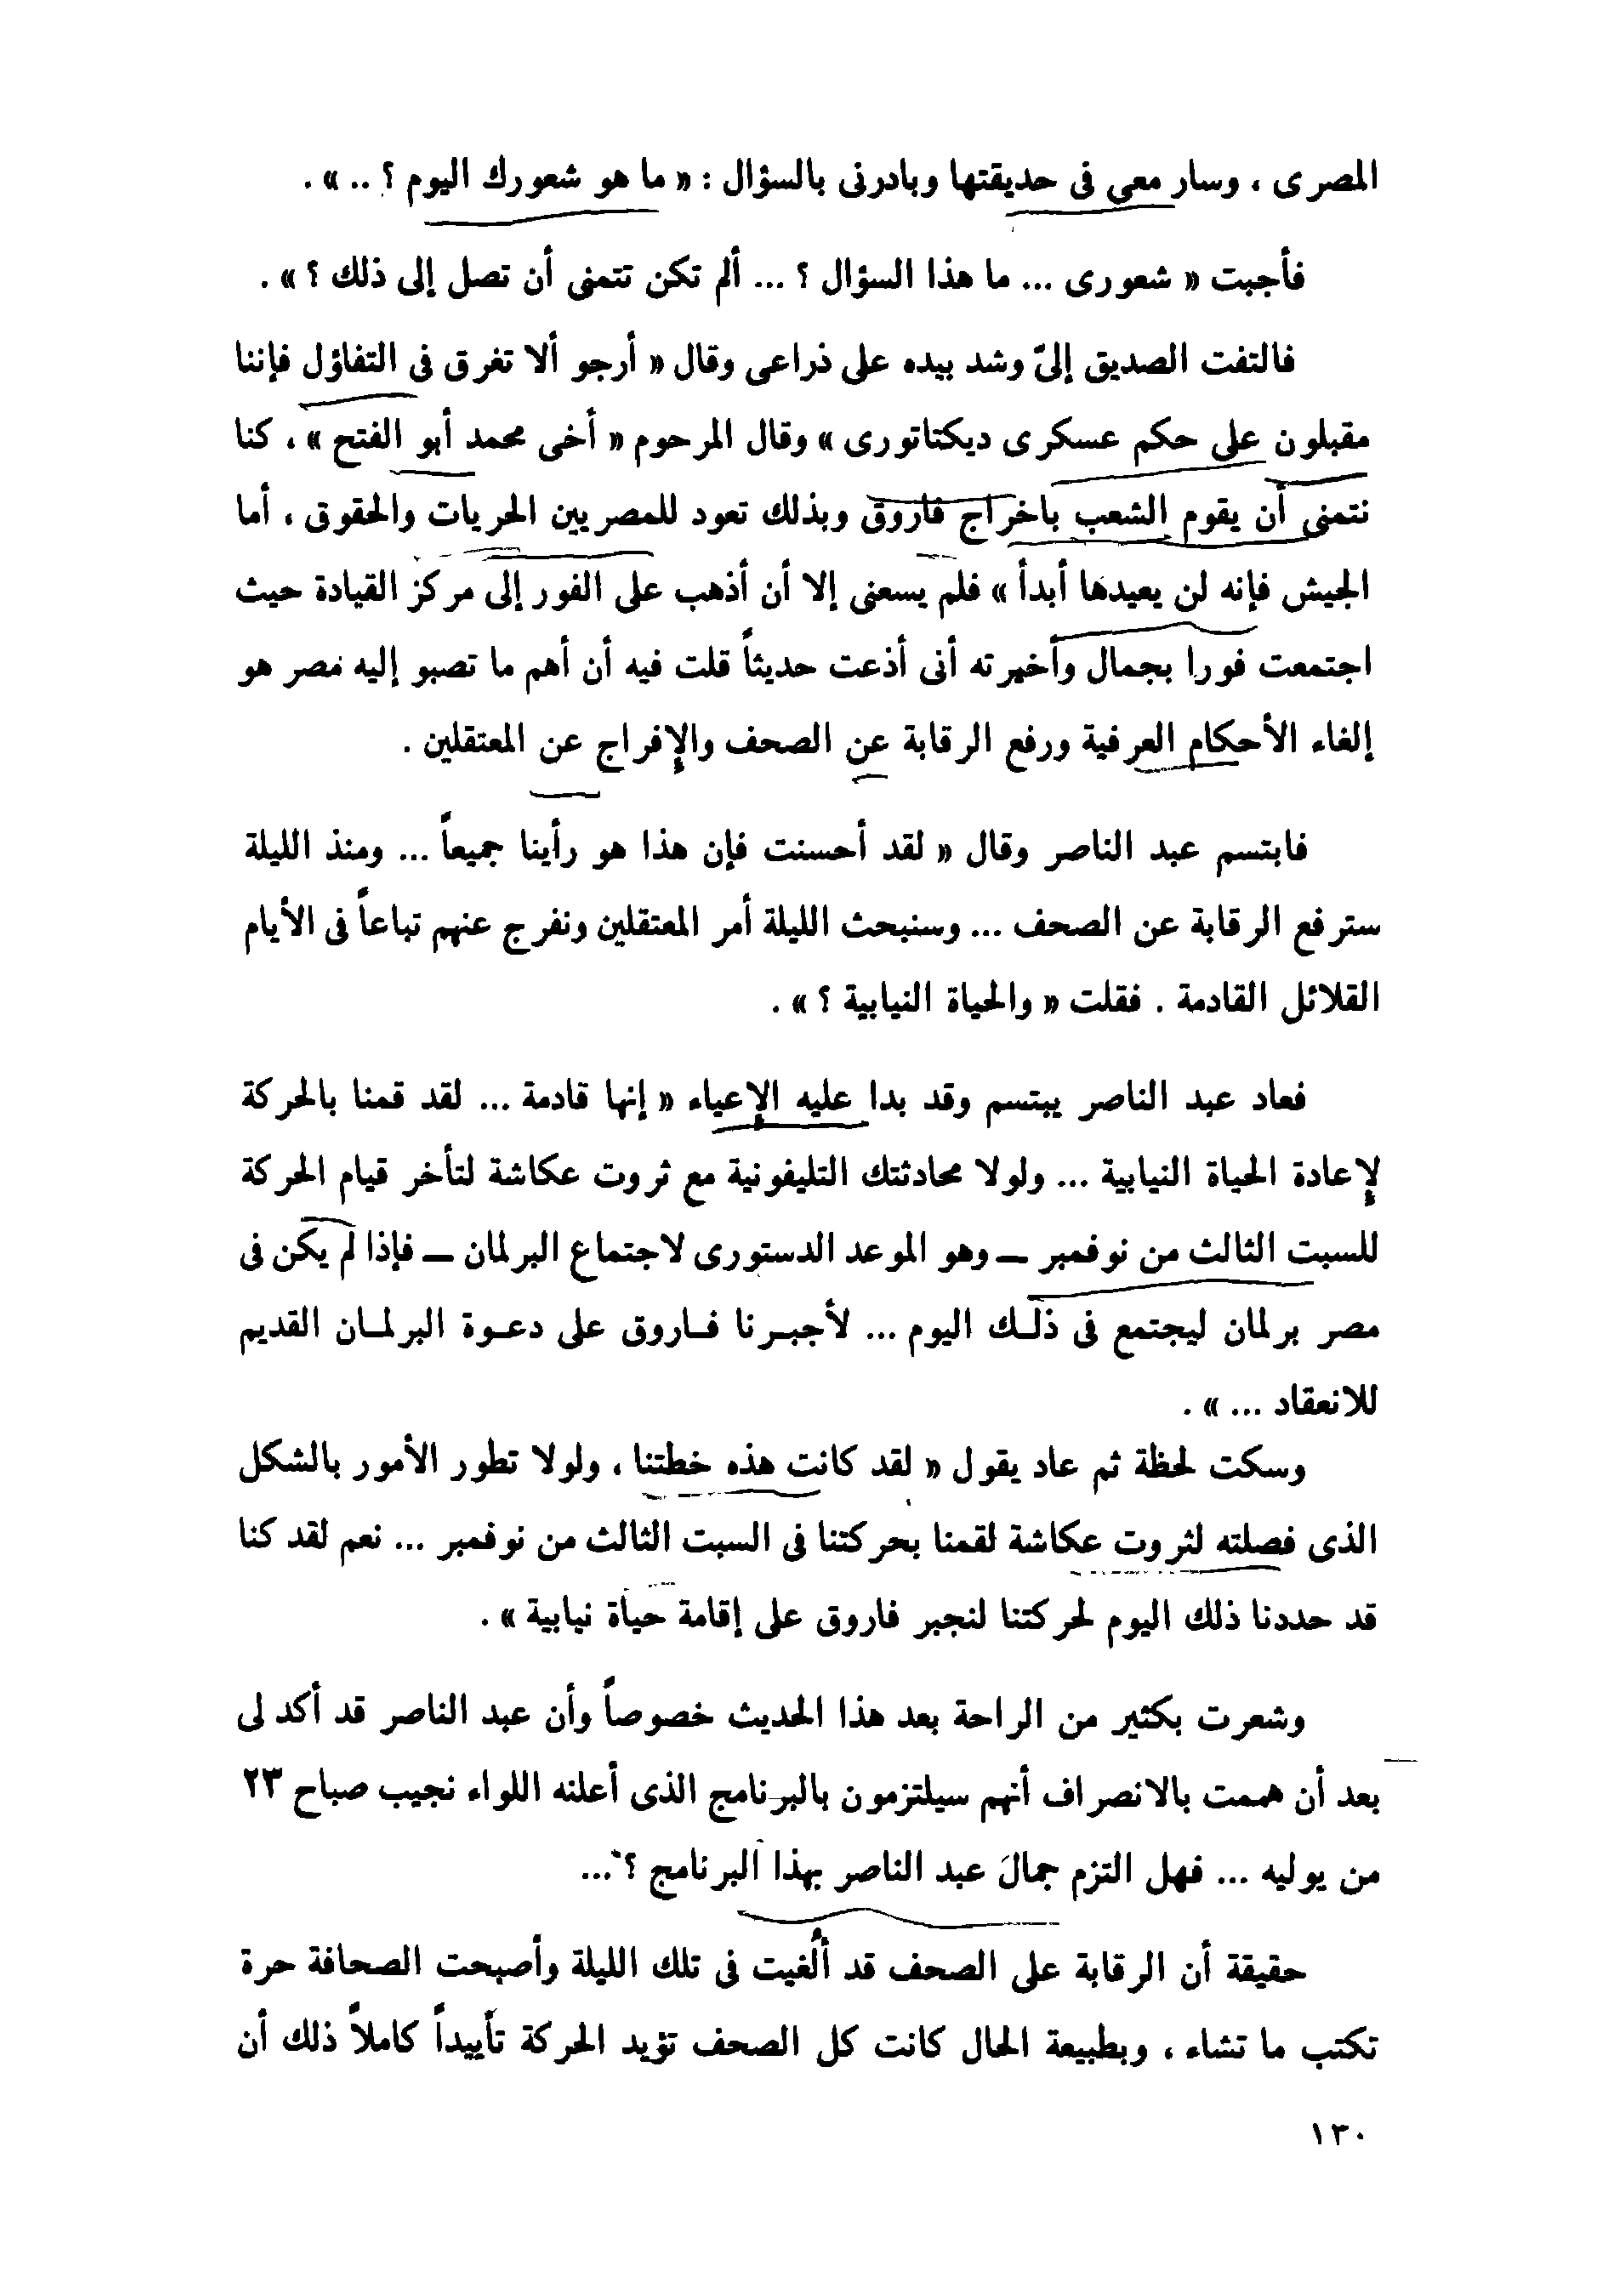 المصرى ، وسار معى فى حديقتها وبادرنى بالسؤال : « ما هو شعورك اليوم ؟ .. » .
فأجبت « شعورى ... ما هذا السؤال ؟ ... ألم تكن تتمنى أن تصل إلى ذلك ؟ » .
فالتفت الصديق إلىّ وشد بيده على ذراعى وقال « أرجو ألا تغرق فى التفاؤل فإننا
مقبلون على حكم عسكرى ديكتاتورى » وقال المرحوم « أخى محمد أبو الفتح » ، كنا
نتمنى أن يقوم الشعب باخراج فاروق وبذلك تعود للمصريين الحريات والحقوق ، أما
الجيش فإنه لن يعيدها أبدأ » فلم يسعنى إلا أن أذهب على الفور إلى مركز القيادة حيث
اجتمعت فورا بجمال وأخبرته أنى أذعت حديثاً قلت فيه أن أهم ما تصبو إليه مصر هو
إلغاء الأحكام العرفية ورفع الرقابة عن الصحف والإفراج عن المعتقلين .
فابتسم عبد الناصر وقال « لقد أحسنت فإن هذا هو رأينا جميعاً ... ومنذ الليلة
سترفع الرقابة عن الصحف ... وسنبحث الليلة أمر المعتقلين ونفرج عنهم تباعاً فى الأيام
القلائل القادمة . فقلت « والحياة النيابية ؟ » .
فعاد عبد الناصر يبتسم وقد بدا عليه الإعياء « إنها قادمة ... لقد قمنا بالحركة
لإعادة الحياة النيابية ... ولولا محادثتك التليفونية مع ثروت عكاشة لتأخر قيام الحركة
للسبت الثالث من نوفمبر — وهو الموعد الدستورى لاجتماع البرلمان — فإذا لم يكن فى
مصر برلمان ليجتمع فى ذلـك اليوم ... لأجبـرنا فـاروق على دعـوة البرلمـان القديم
للانعقاد ... » .
وسكت لحظة ثم عاد يقول « لقد كانت هذه خطتنا ، ولولا تطور الأمور بالشكل
الذى فصلته لثروت عكاشة لقمنا بحركتنا فى السبت الثالث من نوفمبر ... نعم لقد كنا
قد حددنا ذلك اليوم لحركتنا لنجبر فاروق على إقامة حياة نيابية » .
وشعرت بكثير من الراحة بعد هذا الحديث خصوصاً وأن عبد الناصر قد أكد لى
بعد أن هممت بالانصراف أنهم سيلتزمون بالبرنامج الذى أعلنه اللواء نجيب صباح ٢٣
من يوليه ... فهل التزم جمال عبد الناصر بهذا البرنامج ؟ ...
حقيقة أن الرقابة على الصحف قد أُلغيت فى تلك الليلة وأصبحت الصحافة حرة
تكتب ما تشاء ، وبطبيعة الحال كانت كل الصحف تؤيد الحركة تأييداً كاملاً ذلك أن
١٣٠